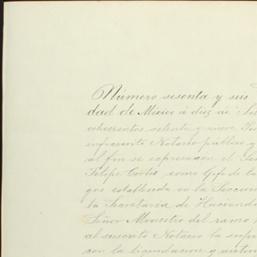 Número sesenta y seis
dad de México á diez de
ochocientos setenta y nueve
infrascrito Notario público y
al fin se espresarán el
Felipe como Gefe de la
gos establecida en la Sección
la Secretaría de Hacienda
Señor Ministro del ramo
al suscrito Notario la
con la liquidacion y